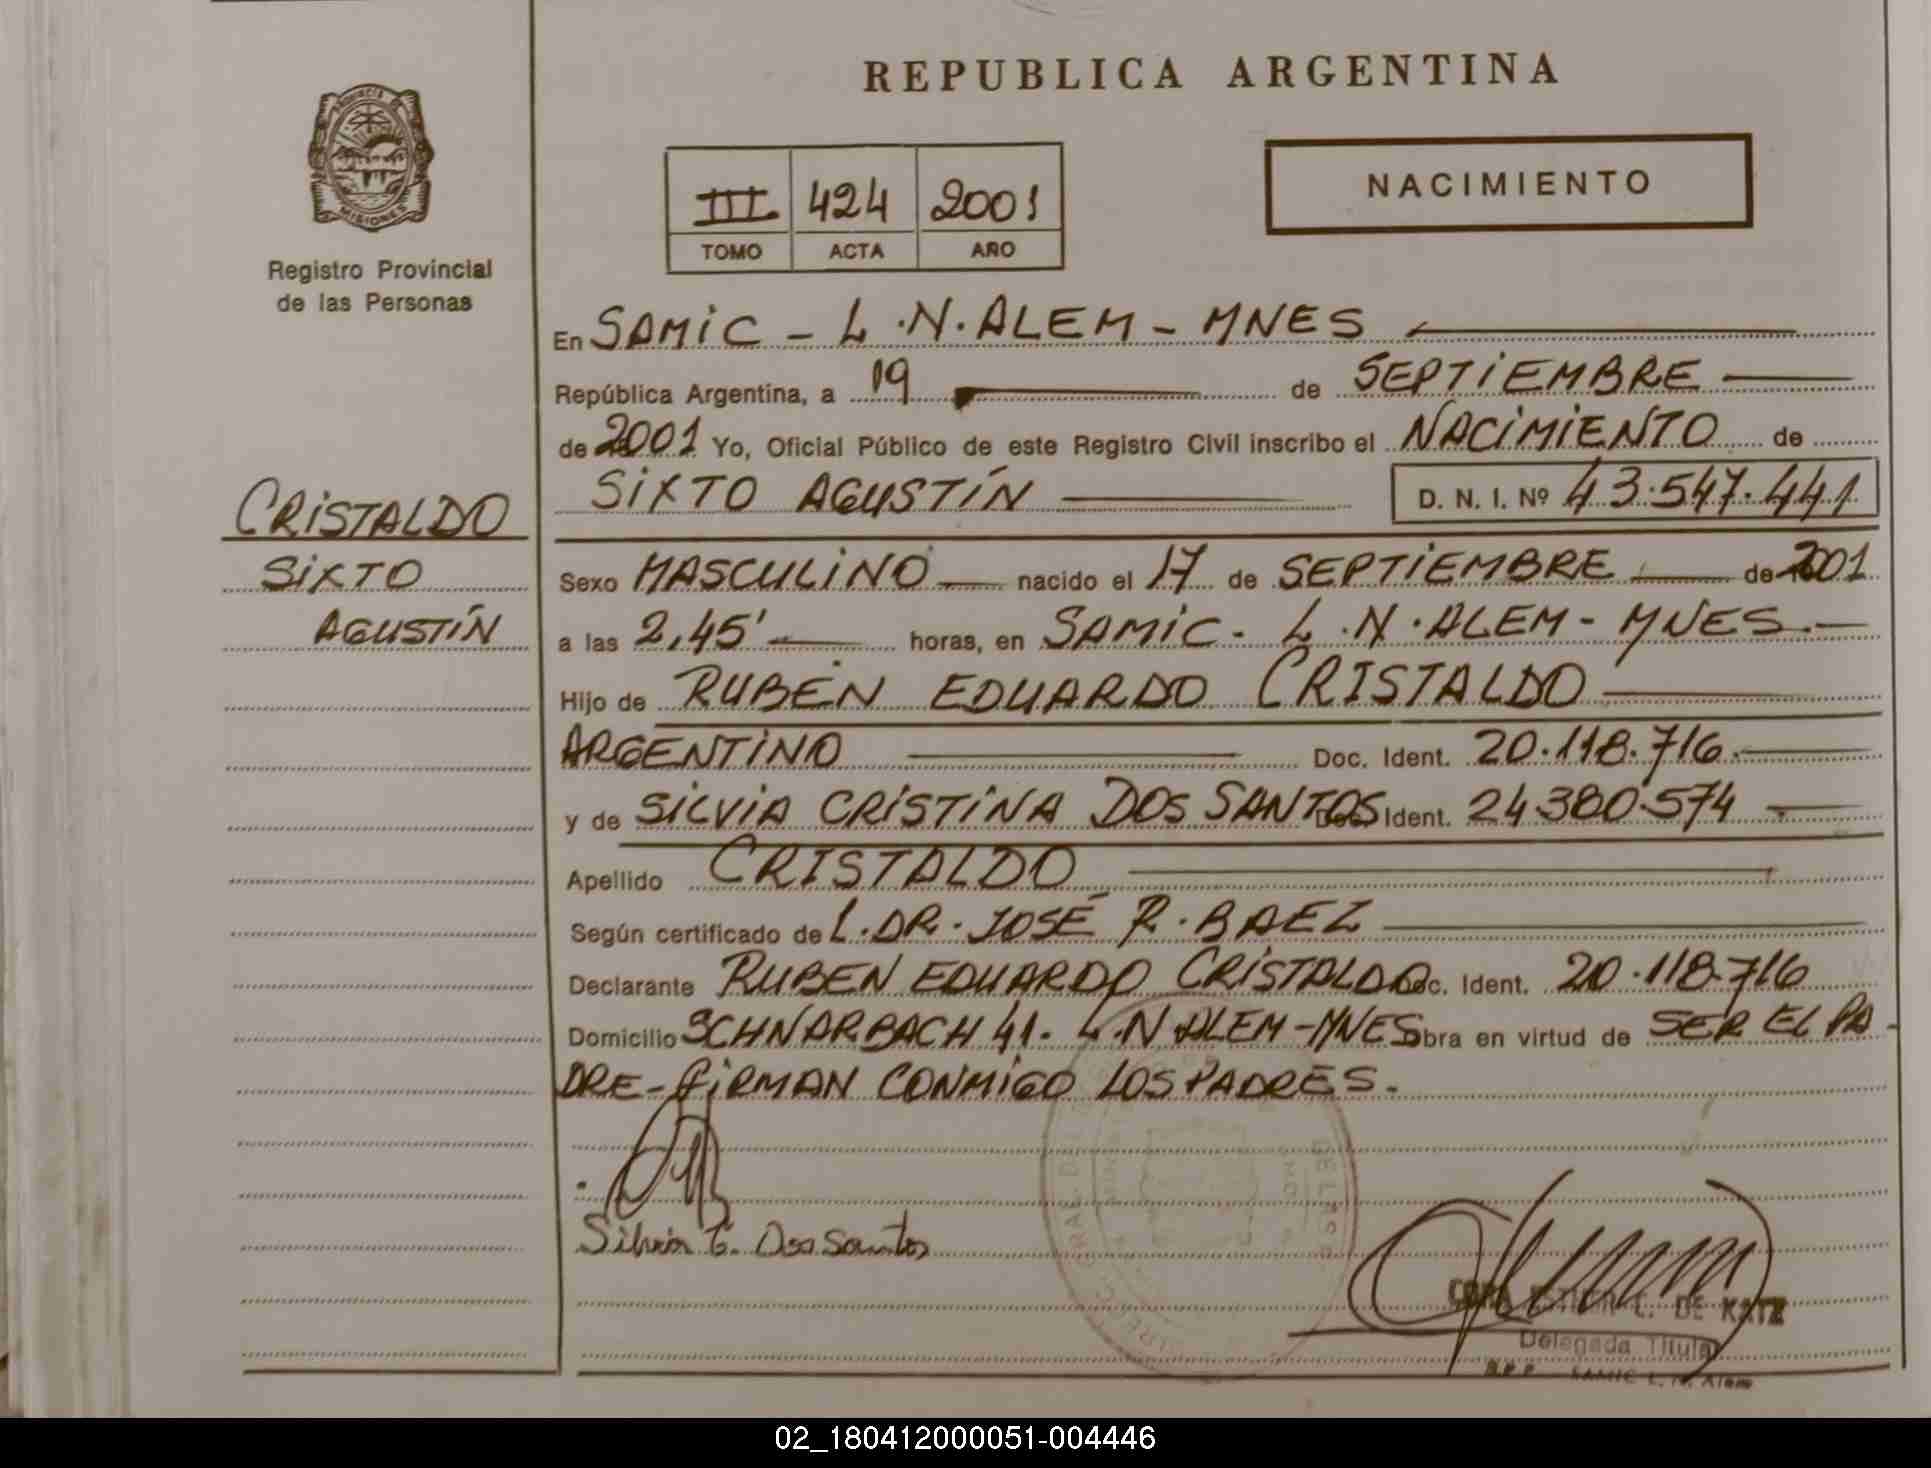 REPUBLICA ARGENTINA
PROVINCIA DE
MISIONES
Registro Provincial
de las Personas
III 424 2001
TOMO ACTA AÑO
NACIMIENTO
En SAMIC - L.N.ALEM - MNES
República Argentina, a 19 de SEPTIEMBRE
de 2001 Yo, Oficial Público de este Registro Civil inscribo el NACIMIENTO de
SIXTO AGUSTÍN D. N. I. Nº 43.547.441
CRISTALDO
SIXTO
AGUSTÍN
Sexo MASCULINO nacido el 17 de SEPTIEMBRE de 2001
a las 2,45' horas, en SAMIC - L.N.ALEM - MNES.
Hijo de RUBÉN EDUARDO CRISTALDO
ARGENTINO Doc. Ident. 20.118.716.
y de SILVIA CRISTINA DOS SANTOS Doc. Ident. 24.380.574
Apellido CRISTALDO
Según certificado de L.DR. JOSÉ R. BAEZ
Declarante RUBEN EDUARDO CRISTALDO Doc. Ident. 20.118.716
Domicilio SCHNARBACH 41. L.N ALEM-MNES Obra en virtud de SER EL PA-
DRE - FIRMAN CONMIGO LOS PADRES.
Silvia C. Dos Santos
DE KATZ
Delegada Titular
SAMIC L. N. Alem
02_180412000051-004446